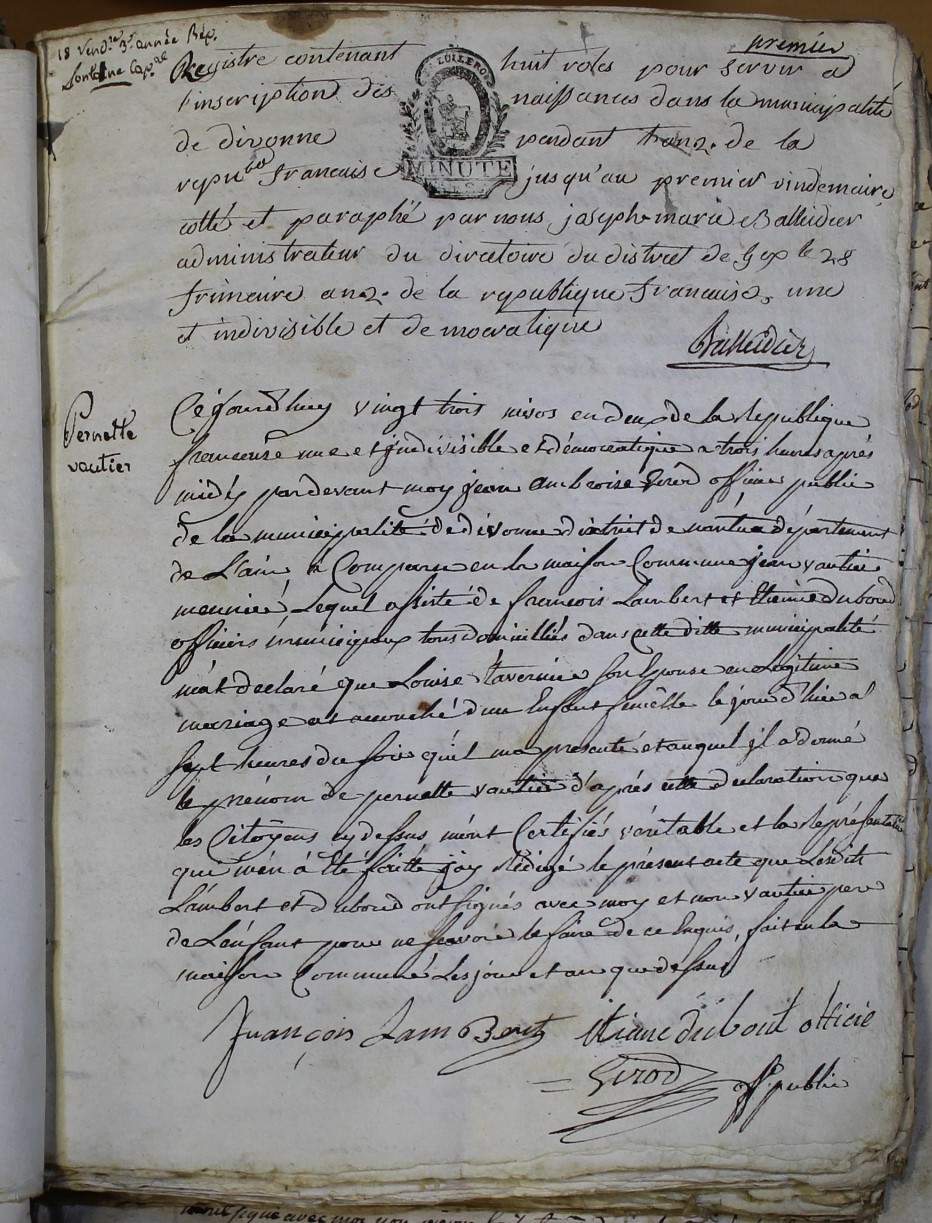 18 Vend.re 3.e année Rép.
premier
Registre contenant huit roles pour servir a
l'inscription des naissances dans la municipalité
de divonne pendant l'an 2.e de la
republ française jusqu'au premier vindemaire
MINUTE
cotté et paraphé par nous joseph marie Balleidier
administrateur du directoire du district de Gex le 28
frimaire an 2.e de la republique francaise, une
et indivisible et democratique
Balleidier
Pernette
vautier
Cejourdhuy vingt trois nivos en deux de la republique
francoise une et jndivisible et démocratique a trois heures après
midÿ pardevant moy jean ambroise Girod officier public
de la municipalité de divonne district de nantua département
de L'ain à Comparu en la maison Commune jean vautier
meunié, Lequel assisté de francois Lambert et Etienne Duboud
officiers municipaux tous domiciliés dans cette ditte municipalité
m'at declaré que Louise tavernie son Epouse en Legitime
mariage at accouché d'un Enfant femelle le jour d'hier a
sept heures du soir qu'il ma presenté et auquel jl a donné
le prénom de pernette vautier d'après cette declaration que
les Citoyens cy dessus m'ont Certifiés véritable et la représentation
que m'en à été faitte jay Rédigé le présent acte que Lesdits
Lambert et duboud ont signés avec moy et non vautier per
de L'enfant pour ne sçavoir le faire de ce Enquis, fait en la
maison Commune Les jour et an que dessus
françois Lambert etiane dubout officié
Girod off. public